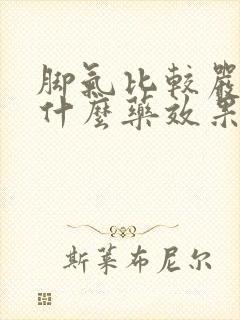 脚氣比較嚴
什麼藥效果
斯萊布尼尔